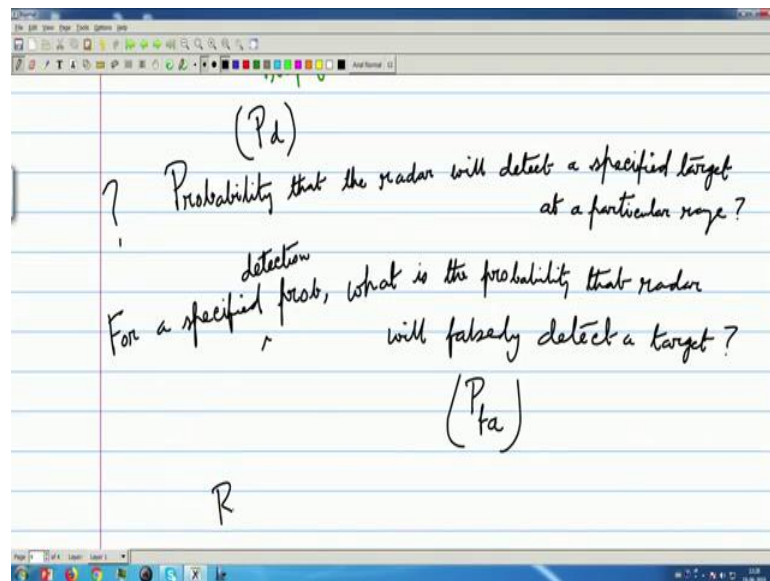 File Edit View Page Tools Options Help
Arial Normal 12
(Pd)
? Probability that the radar will detect a specified target
at a particular range?
detection
For a specified ^ prob, what is the probability that radar
will falsely detect a target?
(Pfa)
R
Page 4 of 4 Layer: Layer 1